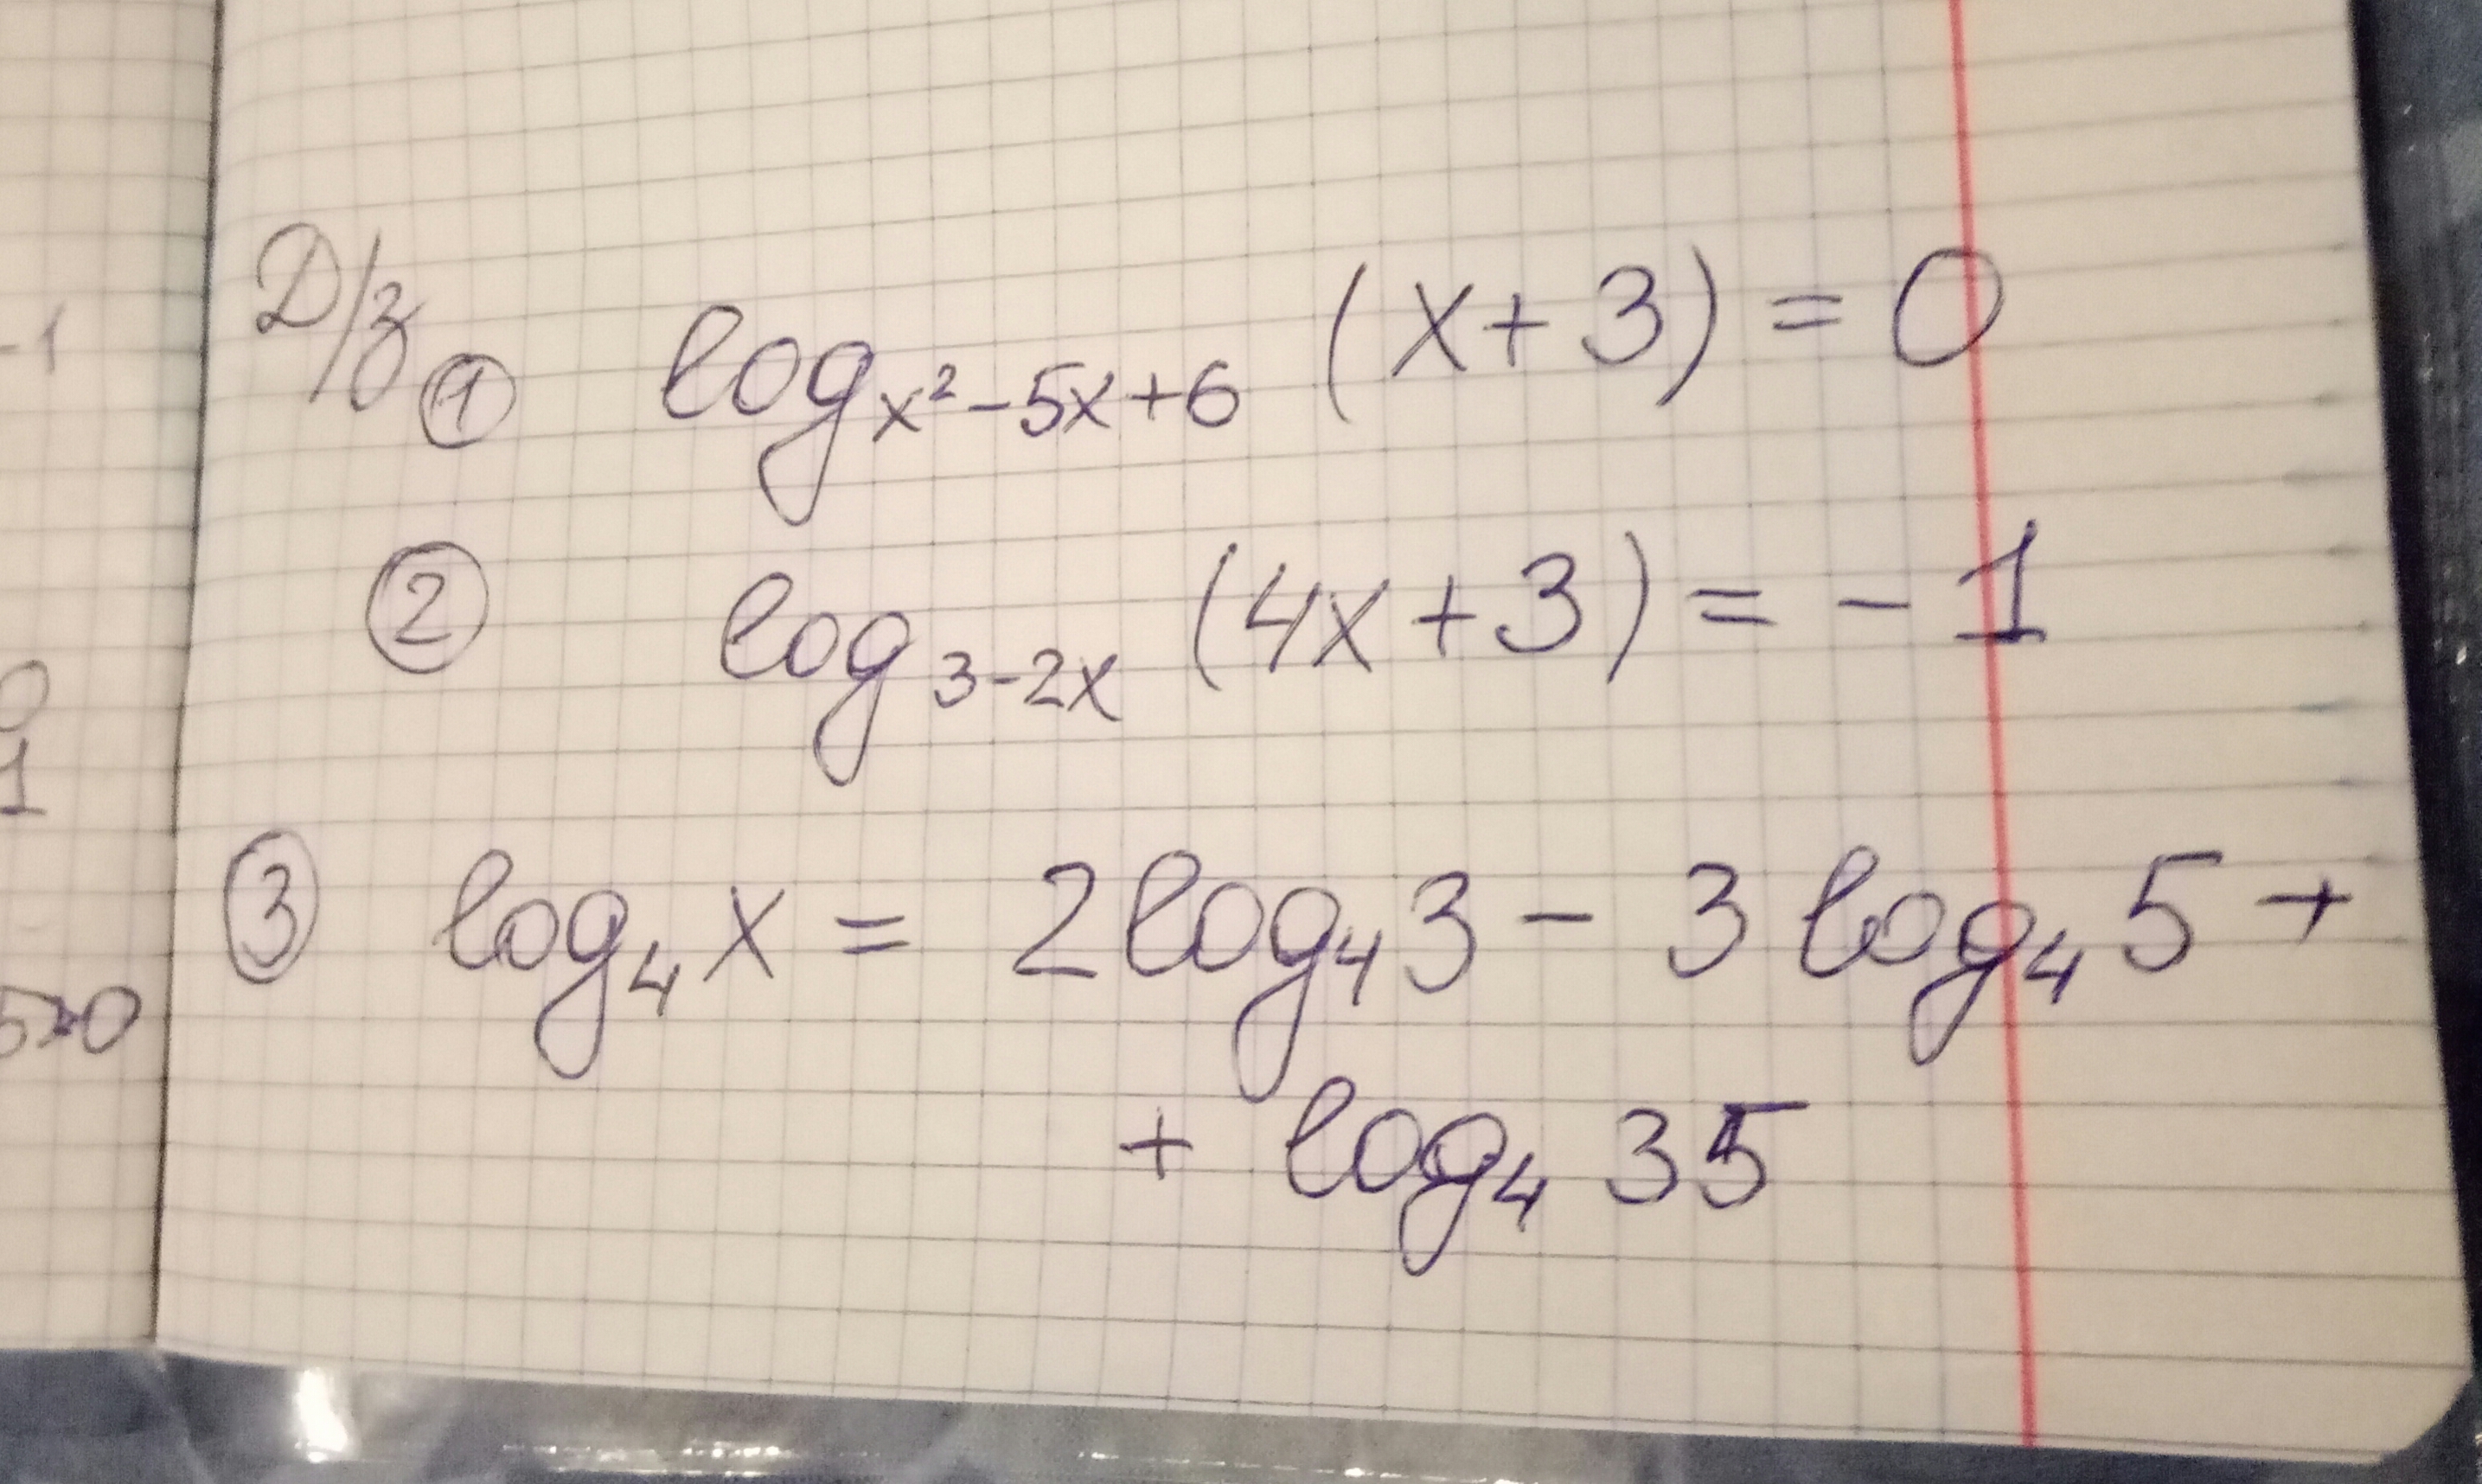 Д/з ① log_{x²-5x+6} (x+3) = 0
② log_{3-2x} (4x+3) = -1
③ log₄ x = 2log₄ 3 - 3 log₄ 5 +
+ log₄ 35
-1
0
1
5>0